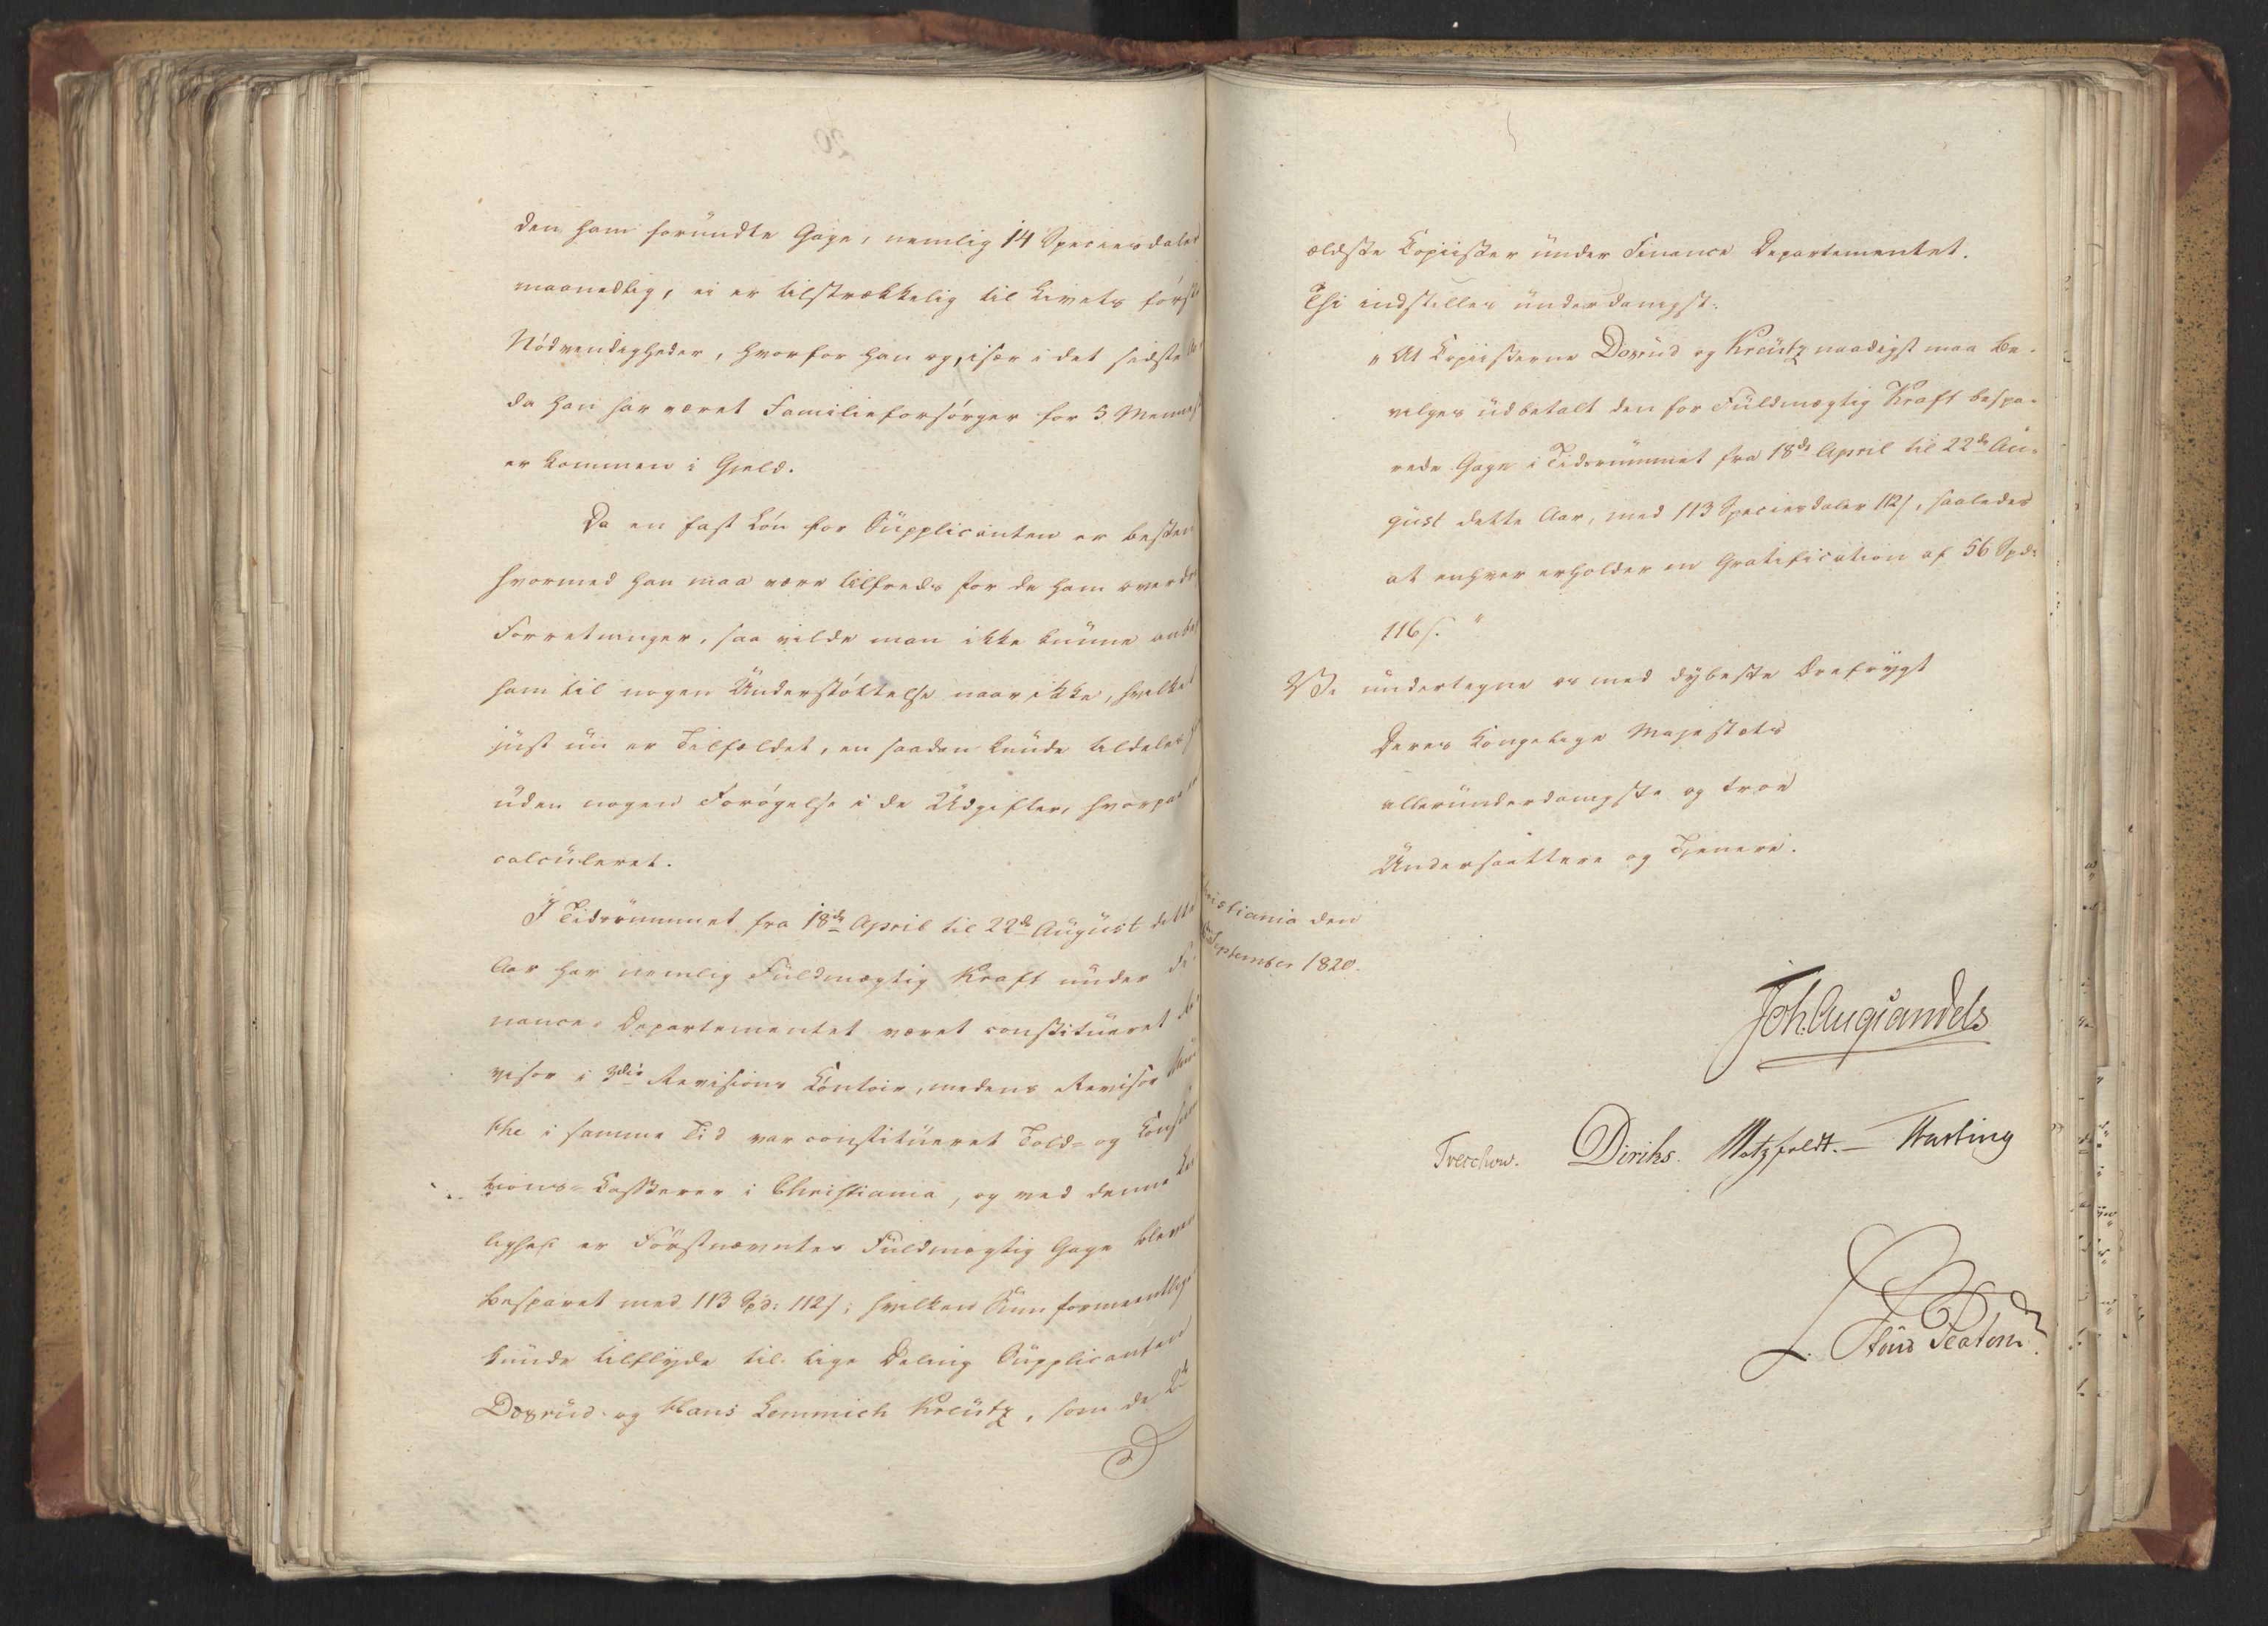 den ham forundte Gage, nemlig 14 Speciesdaler
maanedlig, ei er tilstrækkelig til Livets første
Nødvendigheder, hvorfor han og, især i det sidste
da han har været Familieforsørger for 3 Mennes
er kommen i Gjeld.
Da en fast Løn for Supplicanten er bestem
hvormed han maa være tilfreds for de ham overdr
Forretninger, saa vilde man ikke kunne anbef
ham til nogen Understøttelse naar ikke, hvilket
just nu er Tilfældet, en saadan kunde tildeles
uden nogen Forøgelse i de Udgifter, hvorpaa
calculeret.
I Tidsrummet fra 18de April til 22de August dette
Aar har nemlig Fuldmægtig Kraft under Fi
nance-Departementet været constitueret Re
visor i 3die Revisions Contoir, medens Revisor
the i samme Tid var constitueret Told- og Consum
tions-Casserer i Christiania, og ved denne Lei
lighed er Førstnævntes Fuldmægtig Gage bleven
besparet med 113 Spd: 112 s; hvilken Sum formeentlig
kunde tilflyde til lige Deling Supplicanten
Dosrud og Hans Lemmich Kreutz, som de
20
ældste Copiister under Finance Departementet.
Thi indstilles underdanigst:
"At Copiisterne Dosrud og Kreutz naadigst maa be-
vilges udbetalt den for Fuldmægtig Kraft bespa-
rede Gage i Tidsrummet fra 18de April til 22de Au-
gust dette Aar, med 113 Speciesdaler 112 s, saaledes
at enhver erholder en Gratification af 56 Spd:
116 s."
Vi undertegne os med dybeste Ærefrygt
Deres Kongelige Majestæts
allerunderdanigste og troe
Undersaattere og Tjenere.
ristiania den
September 1820.
Joh. Aug. Sandels
Treschow. Diriks. Motzfeldt. — Fasting